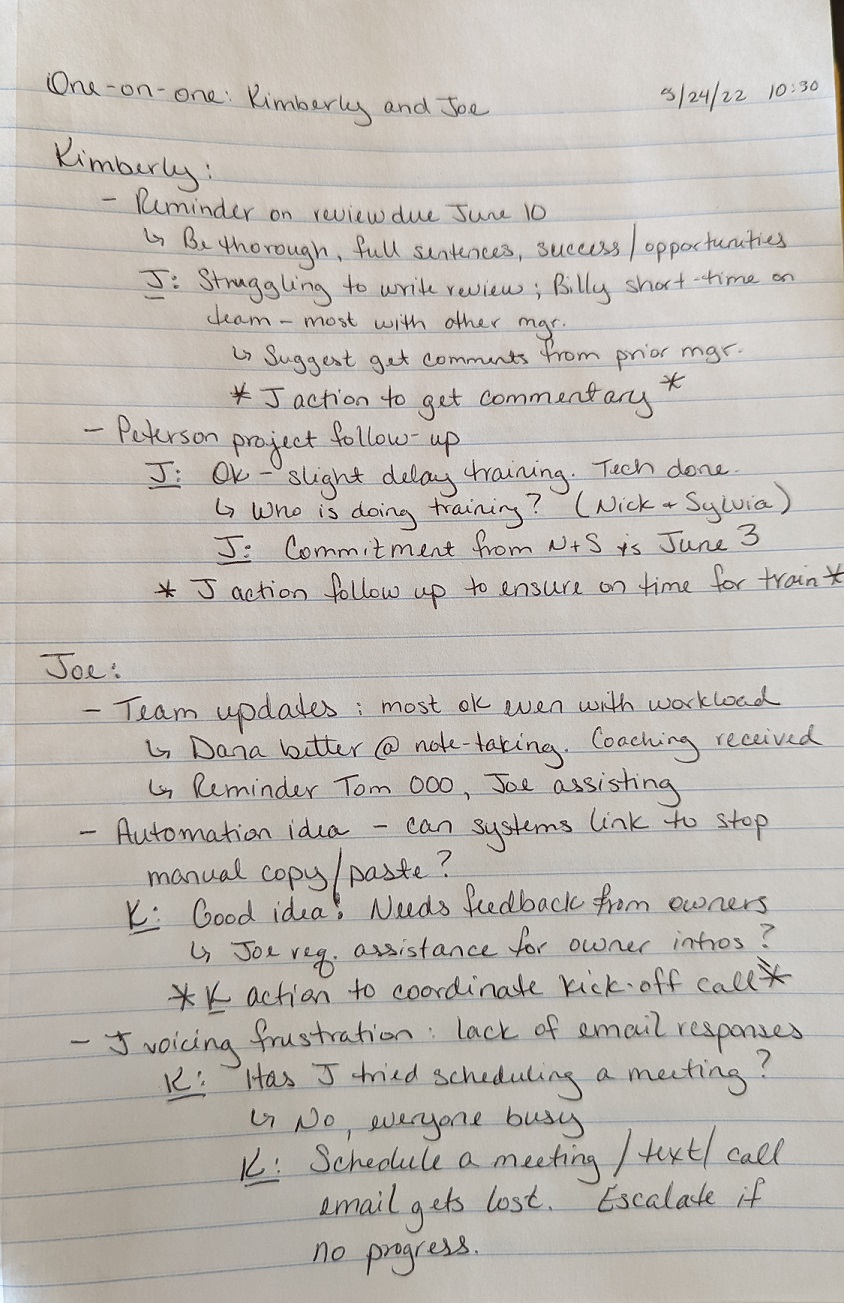 One-on-one: Kimberly and Joe 5/24/22 10:30
Kimberly:
- Reminder on review due June 10
↳ Be thorough, full sentences, success/opportunities
J: Struggling to write review; Billy short-time on
team - most with other mgr.
↳ Suggest get comments from prior mgr.
* J action to get commentary *
- Peterson project follow-up
J: Ok - slight delay training. Tech done.
↳ Who is doing training? (Nick + Sylvia)
J: Commitment from N+S is June 3
* J action follow up to ensure on time for train *
Joe:
- Team updates: most ok even with workload
↳ Dana better @ note-taking. Coaching received
↳ Reminder Tom OOO, Joe assisting
- Automation idea - can systems link to stop
manual copy/paste?
K: Good idea! Needs feedback from owners
↳ Joe req. assistance for owner intros?
* K action to coordinate kick-off call *
- J voicing frustration: lack of email responses
K: Has J tried scheduling a meeting?
↳ No, everyone busy
K: Schedule a meeting/text/call
email gets lost. Escalate if
no progress.